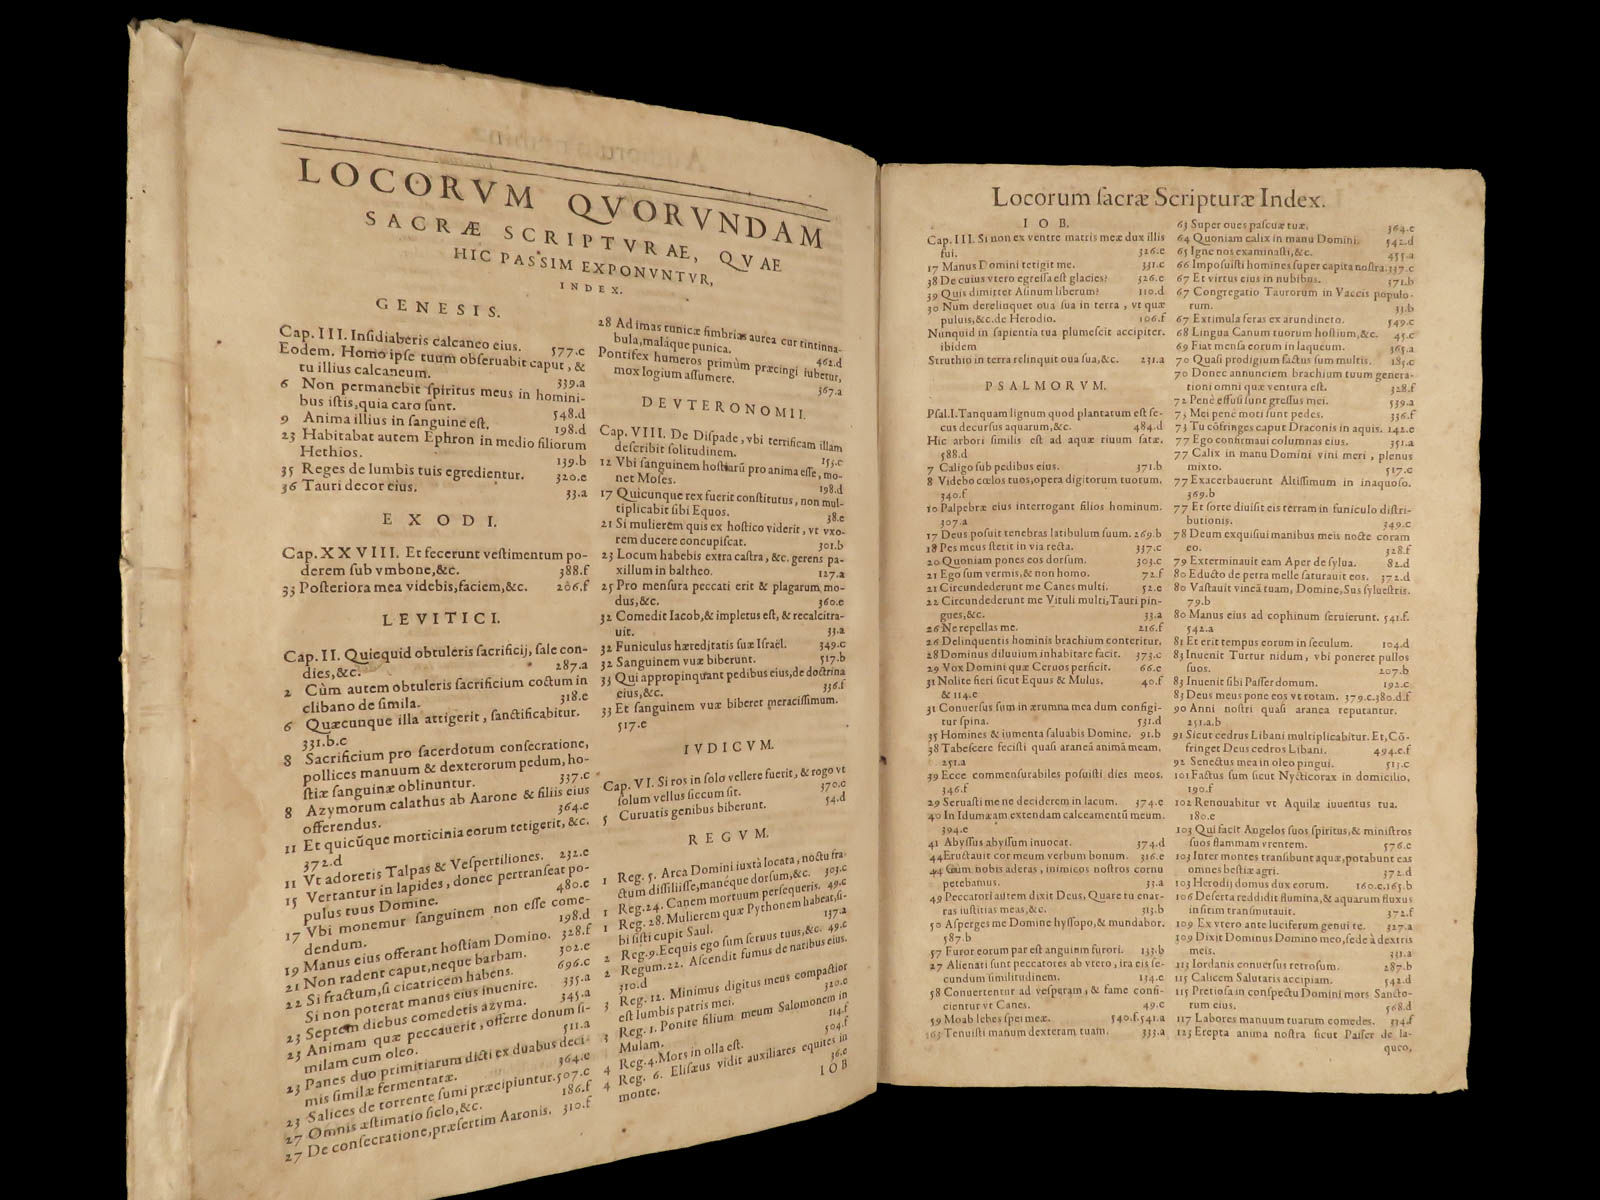 LOCORVM QVORVNDAM
SACRÆ SCRIPTVRAE, QVAE
HIC PASSIM EXPONVNTVR,
INDEX.
GENESIS.
Cap. III. Inſidiaberis calcaneo eius. 577.c
Eodem. Homo ipſe tuum obſeruabit caput, &
tu illius calcaneum. 339.a
6 Non permanebit ſpiritus meus in homini-
bus iſtis, quia caro ſunt. 548.d
9 Anima illius in ſanguine eſt. 198.d
23 Habitabat autem Ephron in medio filiorum
Hethios. 139.b
35 Reges de lumbis tuis egredientur. 320.e
36 Tauri decor eius. 33.a
EXODI.
Cap. XXVIII. Et fecerunt veſtimentum po-
derem ſub vmbone, &c. 388.f
33 Poſteriora mea videbis, faciem, &c. 206.f
LEVITICI.
Cap. II. Quicquid obtuleris ſacrificij, ſale con-
dies, &c. 287.a
2 Cùm autem obtuleris ſacrificium coctum in
clibano de ſimila. 318.e
6 Quæcunque illa attigerit, ſanctificabitur.
331.b.c
8 Sacrificium pro ſacerdotum conſecratione,
pollices manuum & dexterorum pedum, ho-
ſtiæ ſanguinæ oblinuntur. 337.c
8 Azymorum calathus ab Aarone & filiis eius
offerendus. 364.e
11 Et quicũque morticinia eorum tetigerit, &c.
372.d
11 Vt adoretis Talpas & Veſpertiliones. 232.e
15 Vertantur in lapides, donec pertranſeat po-
pulus tuus Domine. 480.e
17 Vbi monemur ſanguinem non eſſe come-
dendum. 198.d
19 Manus eius offerant hoſtiam Domino. 328.f
21 Non radent caput, neque barbam. 302.e
22 Si fractum, ſi cicatricem habens. 696.c
Si non poterat manus eius inuenire. 335.a
23 Septem diebus comedetis azyma. 345.a
23 Animam quæ peccauerit, offerre donum ſi-
milam cum oleo. 511.a
23 Panes duo primitiarum dicti ex duabus deci-
mis ſimilæ fermentatæ. 364.e
23 Salices de torrente ſumi præcipiuntur. 507.c
27 Omnis æſtimatio ſiclo, &c. 186.f
27 De conſecratione, præſertim Aaronis. 310.f
28 Ad imas tunicæ fimbrias aurea cur tintinna-
bula, maláque punica. 462.d
Pontifex humeros primùm præcingi iubetur,
mox logium aſſumere. 367.a
DEVTERONOMII.
Cap. VIII. De Dipſade, vbi terrificam illam
deſcribit ſolitudinem. 153.c
12 Vbi ſanguinem hoſtiarũ pro anima eſſe, mo-
net Moſes. 198.d
17 Quicunque rex fuerit conſtitutus, non mul-
tiplicabit ſibi Equos. 38.e
21 Si mulierem quis ex hoſtico viderit, vt vxo-
rem ducere concupiſcat. 301.b
23 Locum habebis extra caſtra, &c. gerens pa-
xillum in baltheo. 127.a
25 Pro menſura peccati erit & plagarum mo-
dus, &c. 360.e
32 Comedit Iacob, & impletus eſt, & recalcitra-
uit. 33.a
32 Funiculus hæreditatis ſuæ Iſrael. 349.c
32 Sanguinem vuæ biberunt. 517.b
33 Qui appropinquant pedibus eius, de doctrina
eius, &c. 336.f
33 Et ſanguinem vuæ biberet meraciſſimum.
517.e
IVDICVM.
Cap. VI. Si ros in ſolo vellere fuerit, & rogo vt
ſolum vellus ſiccum ſit. 370.c
5 Curuatis genibus biberunt. 54.d
REGVM.
1 Reg. 5. Arca Domini iuxtà locata, noctu fra-
ctum diſſiliiſſe, manéque dorſum, &c. 303.c
1 Reg. 24. Canem mortuum perſequeris. 49.c
1 Reg. 28. Mulierem quæ Pythonem habeat, ſi-
bi ſiſti cupit Saul. 137.a
2 Reg. 9. Ecquis ego ſum ſeruus tuus, &c. 49.c
2 Regum. 22. Aſcendit fumus de naribus eius.
310.d
3 Reg. 12. Minimus digitus meus compactior
eſt lumbis patris mei. 320.e
3 Reg. 1. Ponite filium meum Salomonem in
Mulam. 114.f
4 Reg. 4. Mors in olla eſt. 504.f
4 Reg. 6. Eliſæus vidit auxiliares equites in
monte. 36.e
IOB
Locorum ſacræ Scripturæ Index.
IOB.
Cap. III. Si non ex ventre matris meæ dux illis
fui. 326.e
17 Manus Domini tetigit me. 331.c
38 De cuius vtero egreſſa eſt glacies? 326.e
39 Quis dimittet Aſinum liberum? 110.d
30 Num derelinquet oua ſua in terra, vt quæ
puluis, &c. de Herodio. 106.f
Nunquid in ſapientia tua plumeſcit accipiter.
ibidem
Struthio in terra relinquit oua ſua, &c. 231.a
PSALMORVM.
Pſal. I. Tanquam lignum quod plantatum eſt ſe-
cus decurſus aquarum, &c. 484.d
Hic arbori ſimilis eſt ad aquæ riuum ſatæ.
588.d
7 Caligo ſub pedibus eius. 371.b
8 Videbo cœlos tuos, opera digitorum tuorum.
340.f
10 Palpebræ eius interrogant filios hominum.
307.a
17 Deus poſuit tenebras latibulum ſuum. 269.b
18 Pes meus ſtetit in via recta. 337.c
20 Quoniam pones eos dorſum. 303.c
21 Ego ſum vermis, & non homo. 72.f
21 Circundederunt me Canes multi. 52.e
22 Circundederunt me Vituli multi, Tauri pin-
gues, &c. 33.a
26 Ne repellas me. 216.f
26 Delinquentis hominis brachium conteritur.
28 Dominus diluuium inhabitare facit. 373.c
29 Vox Domini quæ Ceruos perficit. 66.e
31 Nolite fieri ſicut Equus & Mulus. 40.f
& 114.e
31 Conuerſus ſum in ærumna mea dum configi-
tur ſpina. 531.d
35 Homines & iumenta ſaluabis Domine. 91.b
38 Tabeſcere feciſti quaſi araneã animã meam.
251.a
39 Ecce commenſurabiles poſuiſti dies meos.
346.f
29 Seruaſti me ne deciderem in lacum. 374.e
40 In Idumæam extendam calceamentũ meum.
394.e
41 Abyſſus abyſſum inuocat. 374.d
44 Eructauit cor meum verbum bonum. 316.e
44 Cùm nobis aderas, inimicos noſtros cornu
petebamus. 33.a
49 Peccatori autem dixit Deus, Quare tu enar-
ras iuſtitias meas, &c. 313.b
50 Aſperges me Domine hyſſopo, & mundabor.
587.b
57 Furor eorum par eſt anguinin furori. 133.b
27 Alienati ſunt peccatores ab vtero, ira eis ſe-
cundum ſimilitudinem. 134.e
58 Conuertentur ad veſperam, & fame confi-
cientur vt Canes. 49.c
59 Moab lebes ſpei meæ. 540.f. 541.a
163 Tenuiſti manum dexteram tuam. 333.a
63 Super oues paſcuæ tuæ. 364.e
64 Quoniam calix in manu Domini. 542.d
65 Igne nos examinaſti, &c. 455.a
66 Impoſuiſti homines ſuper capita noſtra. 337.c
67 Et virtus eius in nubibus. 371.b
67 Congregatio Taurorum in Vaccis populo-
rum. 33.b
67 Extimula feras ex arundineto. 549.c
68 Lingua Canum tuorum hoſtium, &c. 45.c
69 Fiat menſa eorum in laqueum. 365.a
70 Quaſi prodigium factus ſum multis. 185.c
70 Donec annunciem brachium tuum genera-
tioni omni quæ ventura eſt. 328.f
72 Penè effuſi ſunt greſſus mei. 539.a
73 Mei penè moti ſunt pedes. 336.f
73 Tu cõfringes caput Draconis in aquis. 142.e
77 Ego confirmaui columnas eius. 351.a
77 Calix in manu Domini vini meri, plenus
mixto. 517.c
77 Exacerbauerunt Altiſſimum in inaquoſo.
369.b
77 Et ſorte diuiſit eis terram in funiculo diſtri-
butionis. 349.c
78 Deum exquiſiui manibus meis nocte coram
eo. 328.f
79 Exterminauit eam Aper de ſylua. 82.d
80 Educto de petra melle ſaturauit eos. 372.d
80 Vaſtauit vineã tuam, Domine, Sus ſylueſtris.
79.b
80 Manus eius ad cophinum ſeruierunt. 541.f.
542.a
81 Et erit tempus eorum in ſeculum. 104.d
83 Inuenit Turtur nidum, vbi poneret pullos
ſuos. 207.b
83 Inuenit ſibi Paſſer domum. 192.c
83 Deus meus pone eos vt rotam. 379.c. 380.d.f
90 Anni noſtri quaſi aranea reputantur.
251.a.b
91 Sicut cedrus Libani multiplicabitur. Et, Cõ-
fringet Deus cedros Libani. 494.e.f
92 Senectus mea in oleo pingui. 513.c
101 Factus ſum ſicut Nycticorax in domicilio,
190.f
102 Renouabitur vt Aquilæ iuuentus tua.
180.e
103 Qui facit Angelos ſuos ſpiritus, & miniſtros
ſuos flammam vrentem. 576.c
103 Inter montes tranſibunt aquæ, potabunt eas
omnes beſtiæ agri. 372.d
103 Herodij domus dux eorum. 160.e. 165.b
106 Deſerta reddidit flumina, & aquarum fluxus
in ſitim tranſmutauit. 372.f
109 Ex vtero ante luciferum genui te. 327.a
109 Dixit Dominus Domino meo, ſede à dextris
meis. 331.a
113 Iordanis conuerſus retrorſum. 287.b
115 Calicem Salutaris accipiam. 542.d
115 Pretioſa in conſpectu Domini mors Sancto-
rum eius. 568.d
117 Labores manuum tuarum comedes. 334.f
123 Erepta anima noſtra ſicut Paſſer de la-
queo,